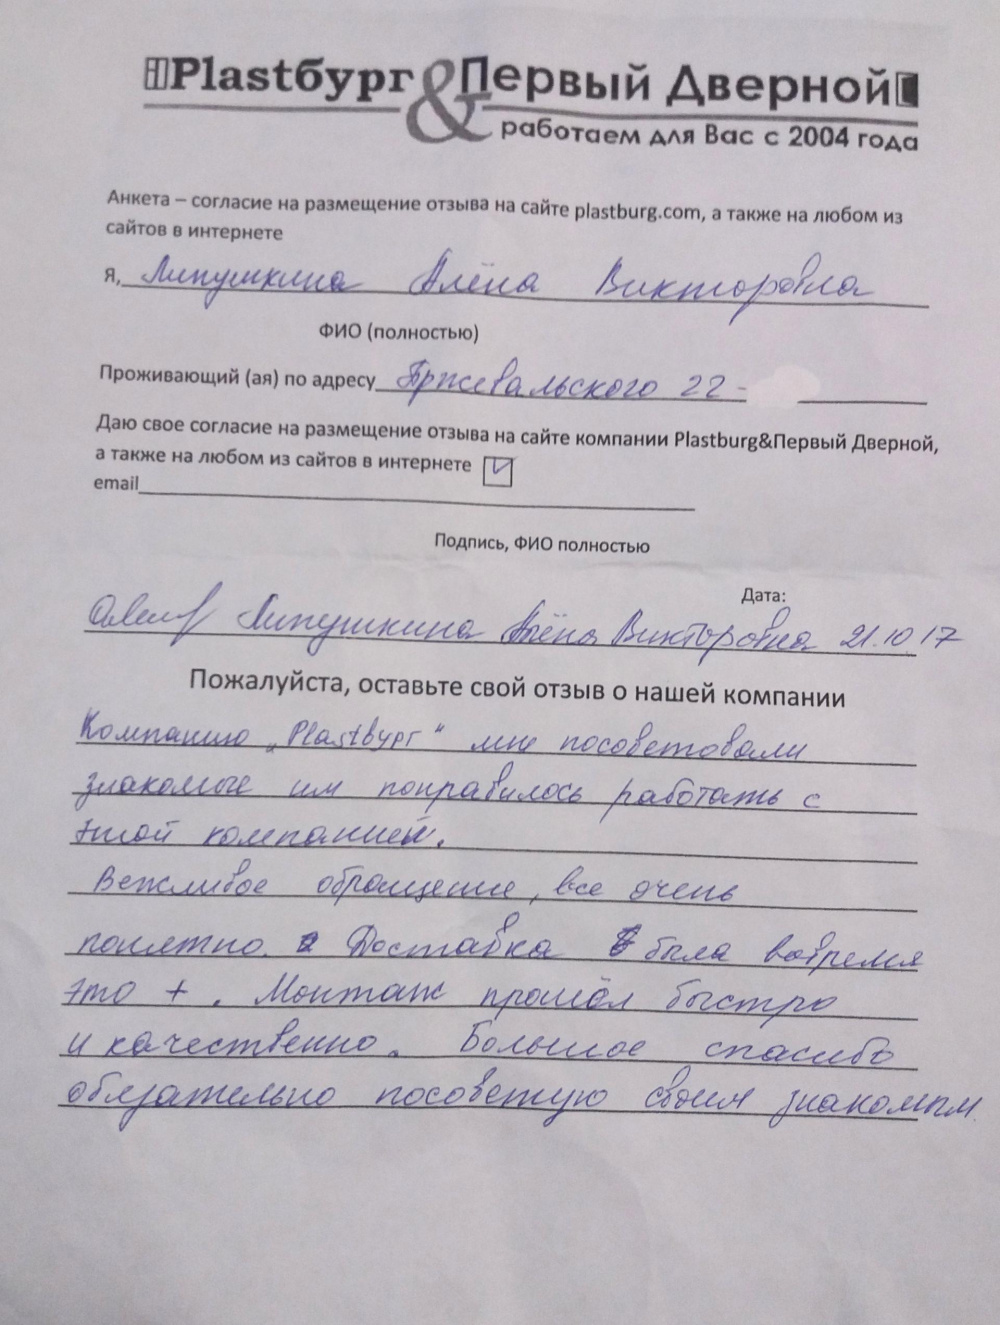 Plastбург & Первый Дверной
работаем для Вас с 2004 года
Анкета – согласие на размещение отзыва на сайте plastburg.com, а также на любом из
сайтов в интернете
Я, Липушкина Алёна Викторовна
ФИО (полностью)
Проживающий (ая) по адресу Пржевальского 22 -
Даю свое согласие на размещение отзыва на сайте компании Plastburg&Первый Дверной,
а также на любом из сайтов в интернете
email
Подпись, ФИО полностью
Дата:
Липушкина Алёна Викторовна 21.10.17
Пожалуйста, оставьте свой отзыв о нашей компании
Компанию „Plastbург“ мне посоветовали
знакомые им понравилось работать с
этой компанией.
Вежливое обращение, все очень
понятно. Доставка была вовремя
это + . Монтаж прошёл быстро
и качественно. Большое спасибо
обязательно посоветую своим знакомым